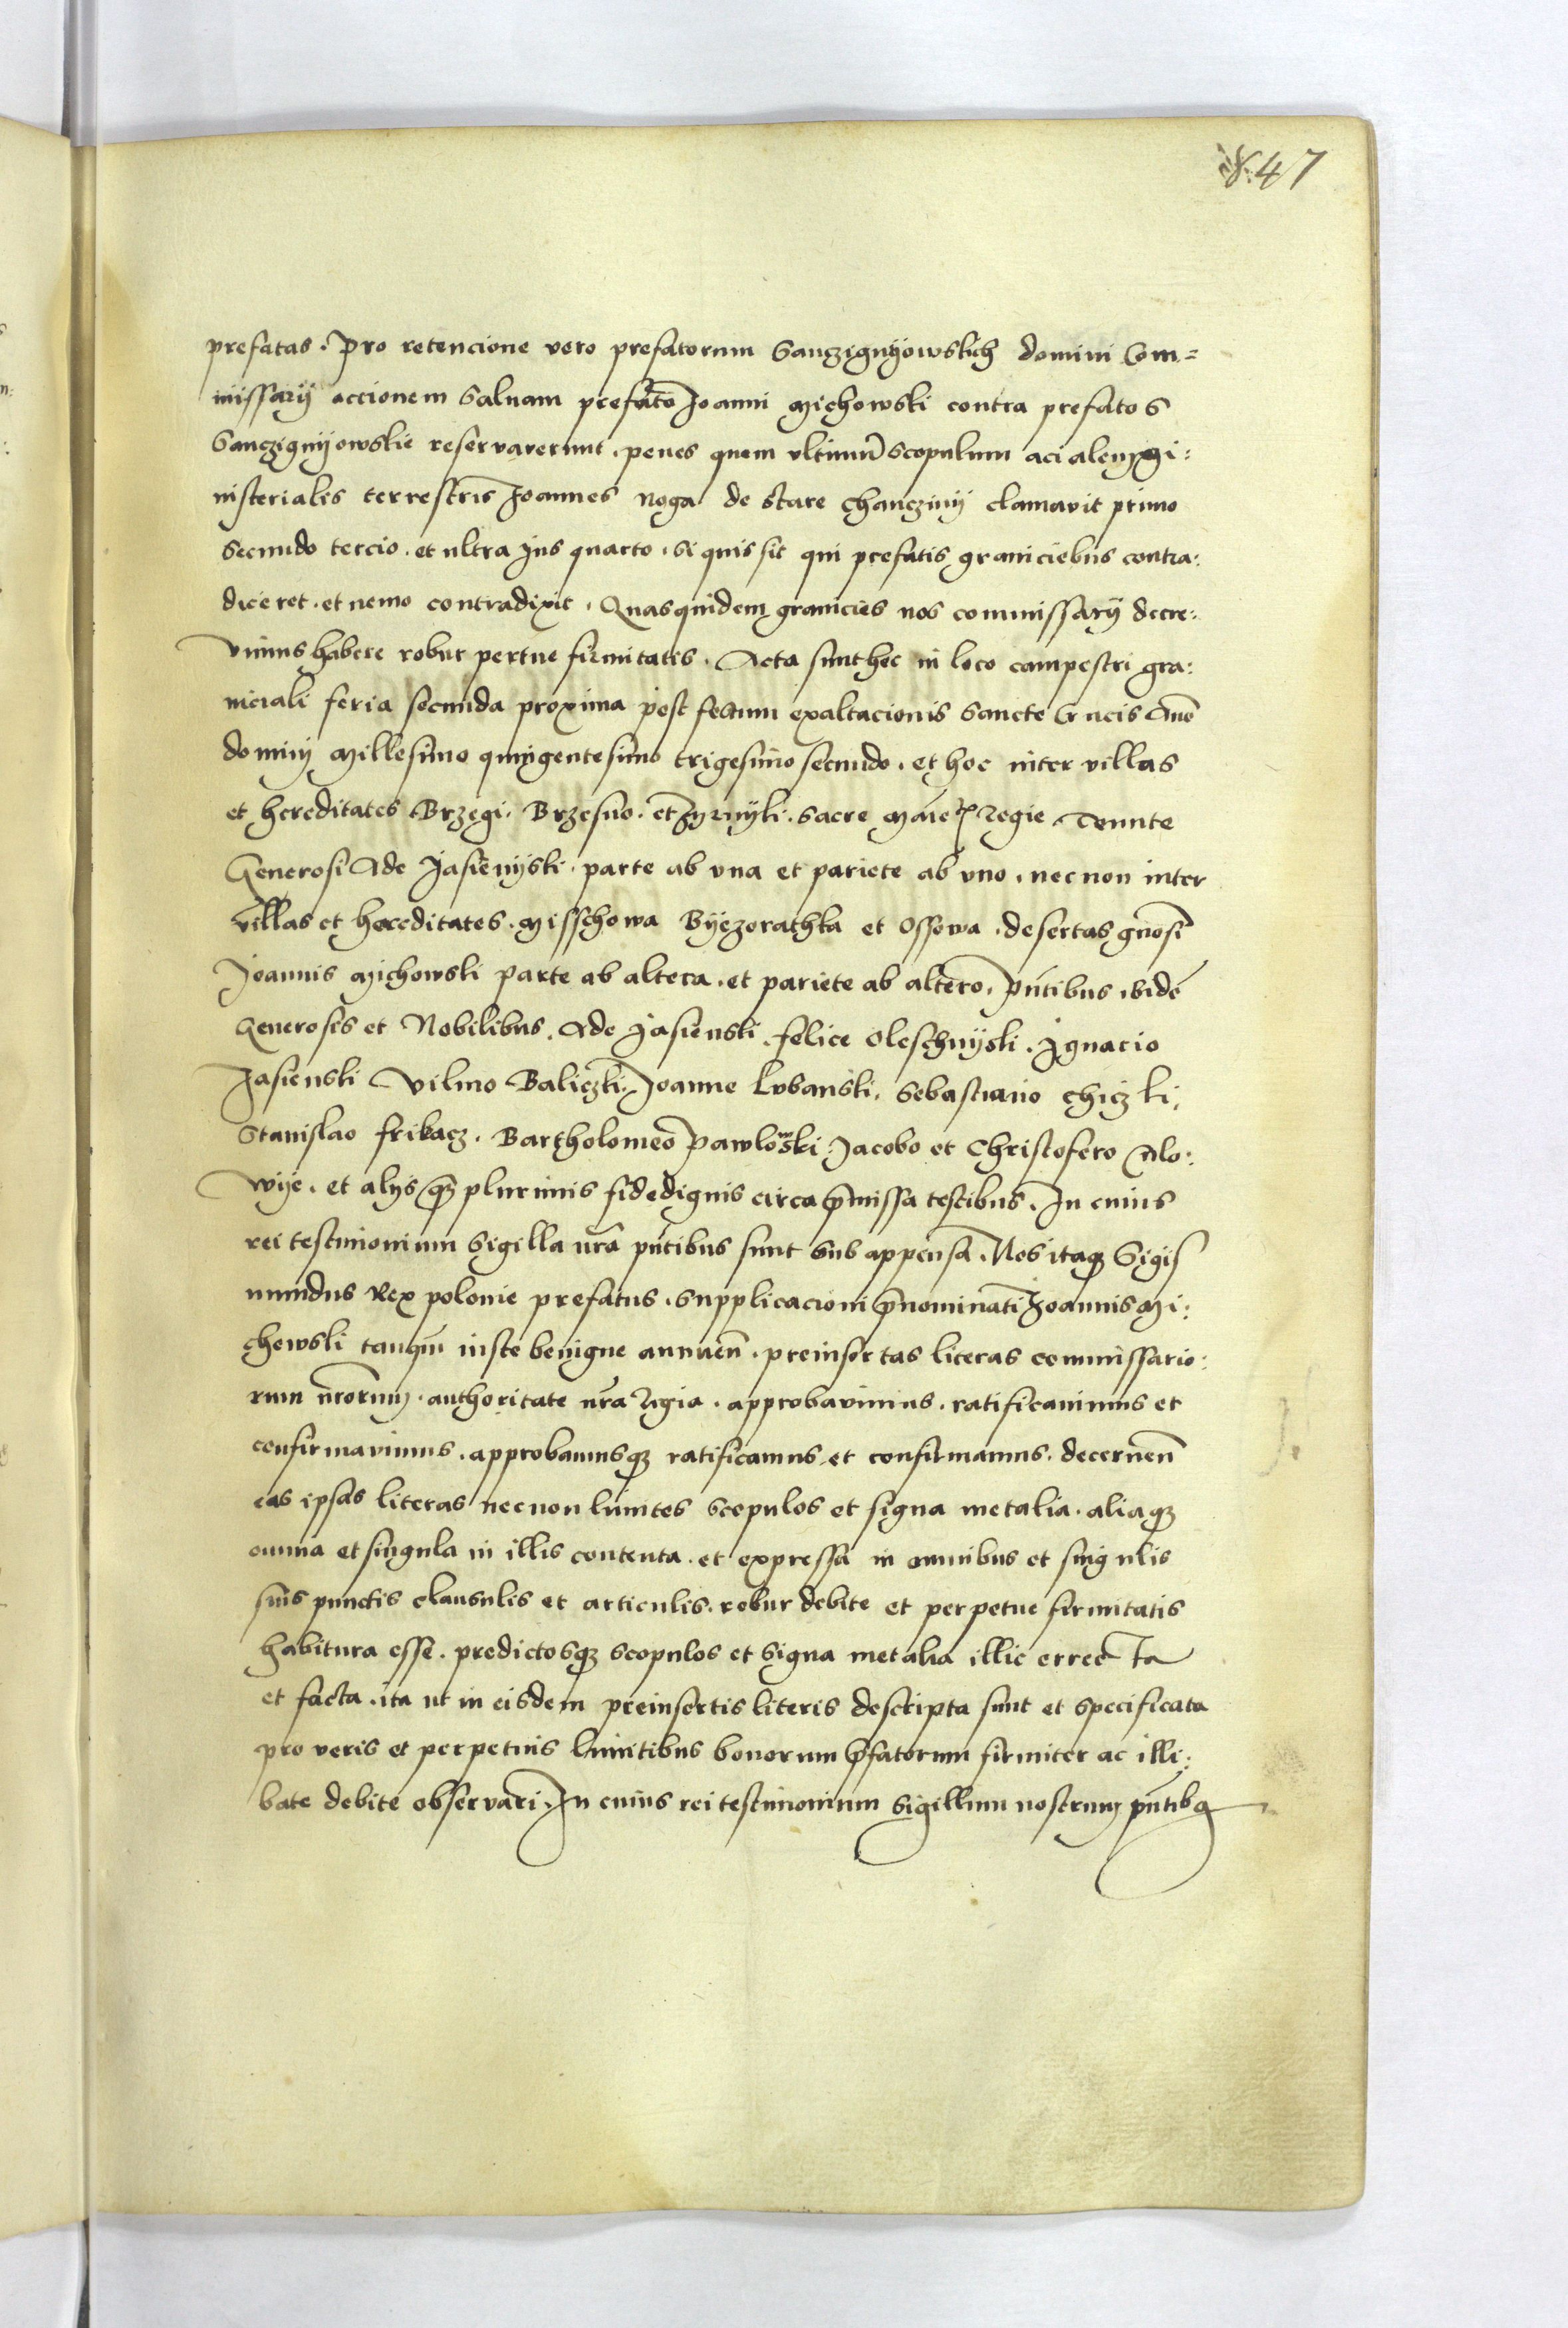 847
prefatas. Pro retencione vero prefatorum Sanczignyowskich domini Com=
missarÿ accionem Salvam prefato Joanni Michowski contra prefatos
Sanczignyowskie reservaverunt. penes quem ultimũ Scopulum acialem Mi:
nisterialis terrestris Joannes Noga de Stare Chancziny clamavit primo
Secundo tercio. et ultra Jus quarto. Si quis sit qui prefatis graniciebus contra:
diceret. et nemo contradixit. Quasquidem granicies nos commissarÿ decre:
vimus habere robur pertue firmitatis. Acta sunt hec in loco campestri gra:
niciali feria secunda proxima post festum exaltacionis Sancte Crucis Anõ
dominÿ Millesimo quingentesimo trigesimo secundo. et hoc inter villas
et hereditates Brzegi. Brzesno. et Zyrnyki. Sacre Maietꝭ Regie Tennte
Generosi Ade Jasienyski. parte ab una et pariete ab uno. necnon inter
villas et hereditates. Misschowa Byezorathka et Ossowa. desertas gñosi
Joannis Michowski parte ab altera. et pariete ab altero. pñtibus ibidẽ
Generosis et Nobilibus. Ade Jasienski. felice Oleschnyski. Ignacio
Jasienski Vilmo Baliczki. Joanne Lubanski. Sebastiano Chiczki.
Stanislao frikacz. Bartholomeo Pawlowski. Jacobo et Christofero Mo:
wye. et alÿs qȝ plurimis fidedignis circa p̃missa testibus. In cuius
rei testimonium Sigilla nr̃a pñtibus sunt Subappensa. Nos itaqȝ Sigis
mundus Rex polonie prefatus. Supplicacioni p̃nominati Joannis Mi:
chowski tanqm̃ iuste benigne annuen̄. preinsertas literas commissario:
rum nr̃orum. authoritate nr̃a Regia. approbavimus. ratificavimus et
confirmavimus. approbamusqȝ ratificamus et confirmamus. decernen̄
eas ipsas literas necnon limites Scopulos et signa metalia. aliaqȝ
omnia et singula in illis contenta. et expressa in omnibus et singulis
suis punctis clausulis et articulis. robur debite et perpetue firmitatis
habitura esse. predictosqȝ scopulos et Signa metalia illic errecta
et facta. ita ut in eisdem preinsertis literis descripta sunt et specificata
pro veris et perpetuis limitibus bonorum p̃fatorum firmiter ac illi:
bate debite observari. In cuius rei testimonium Sigillum nostrum pñtibꝯ